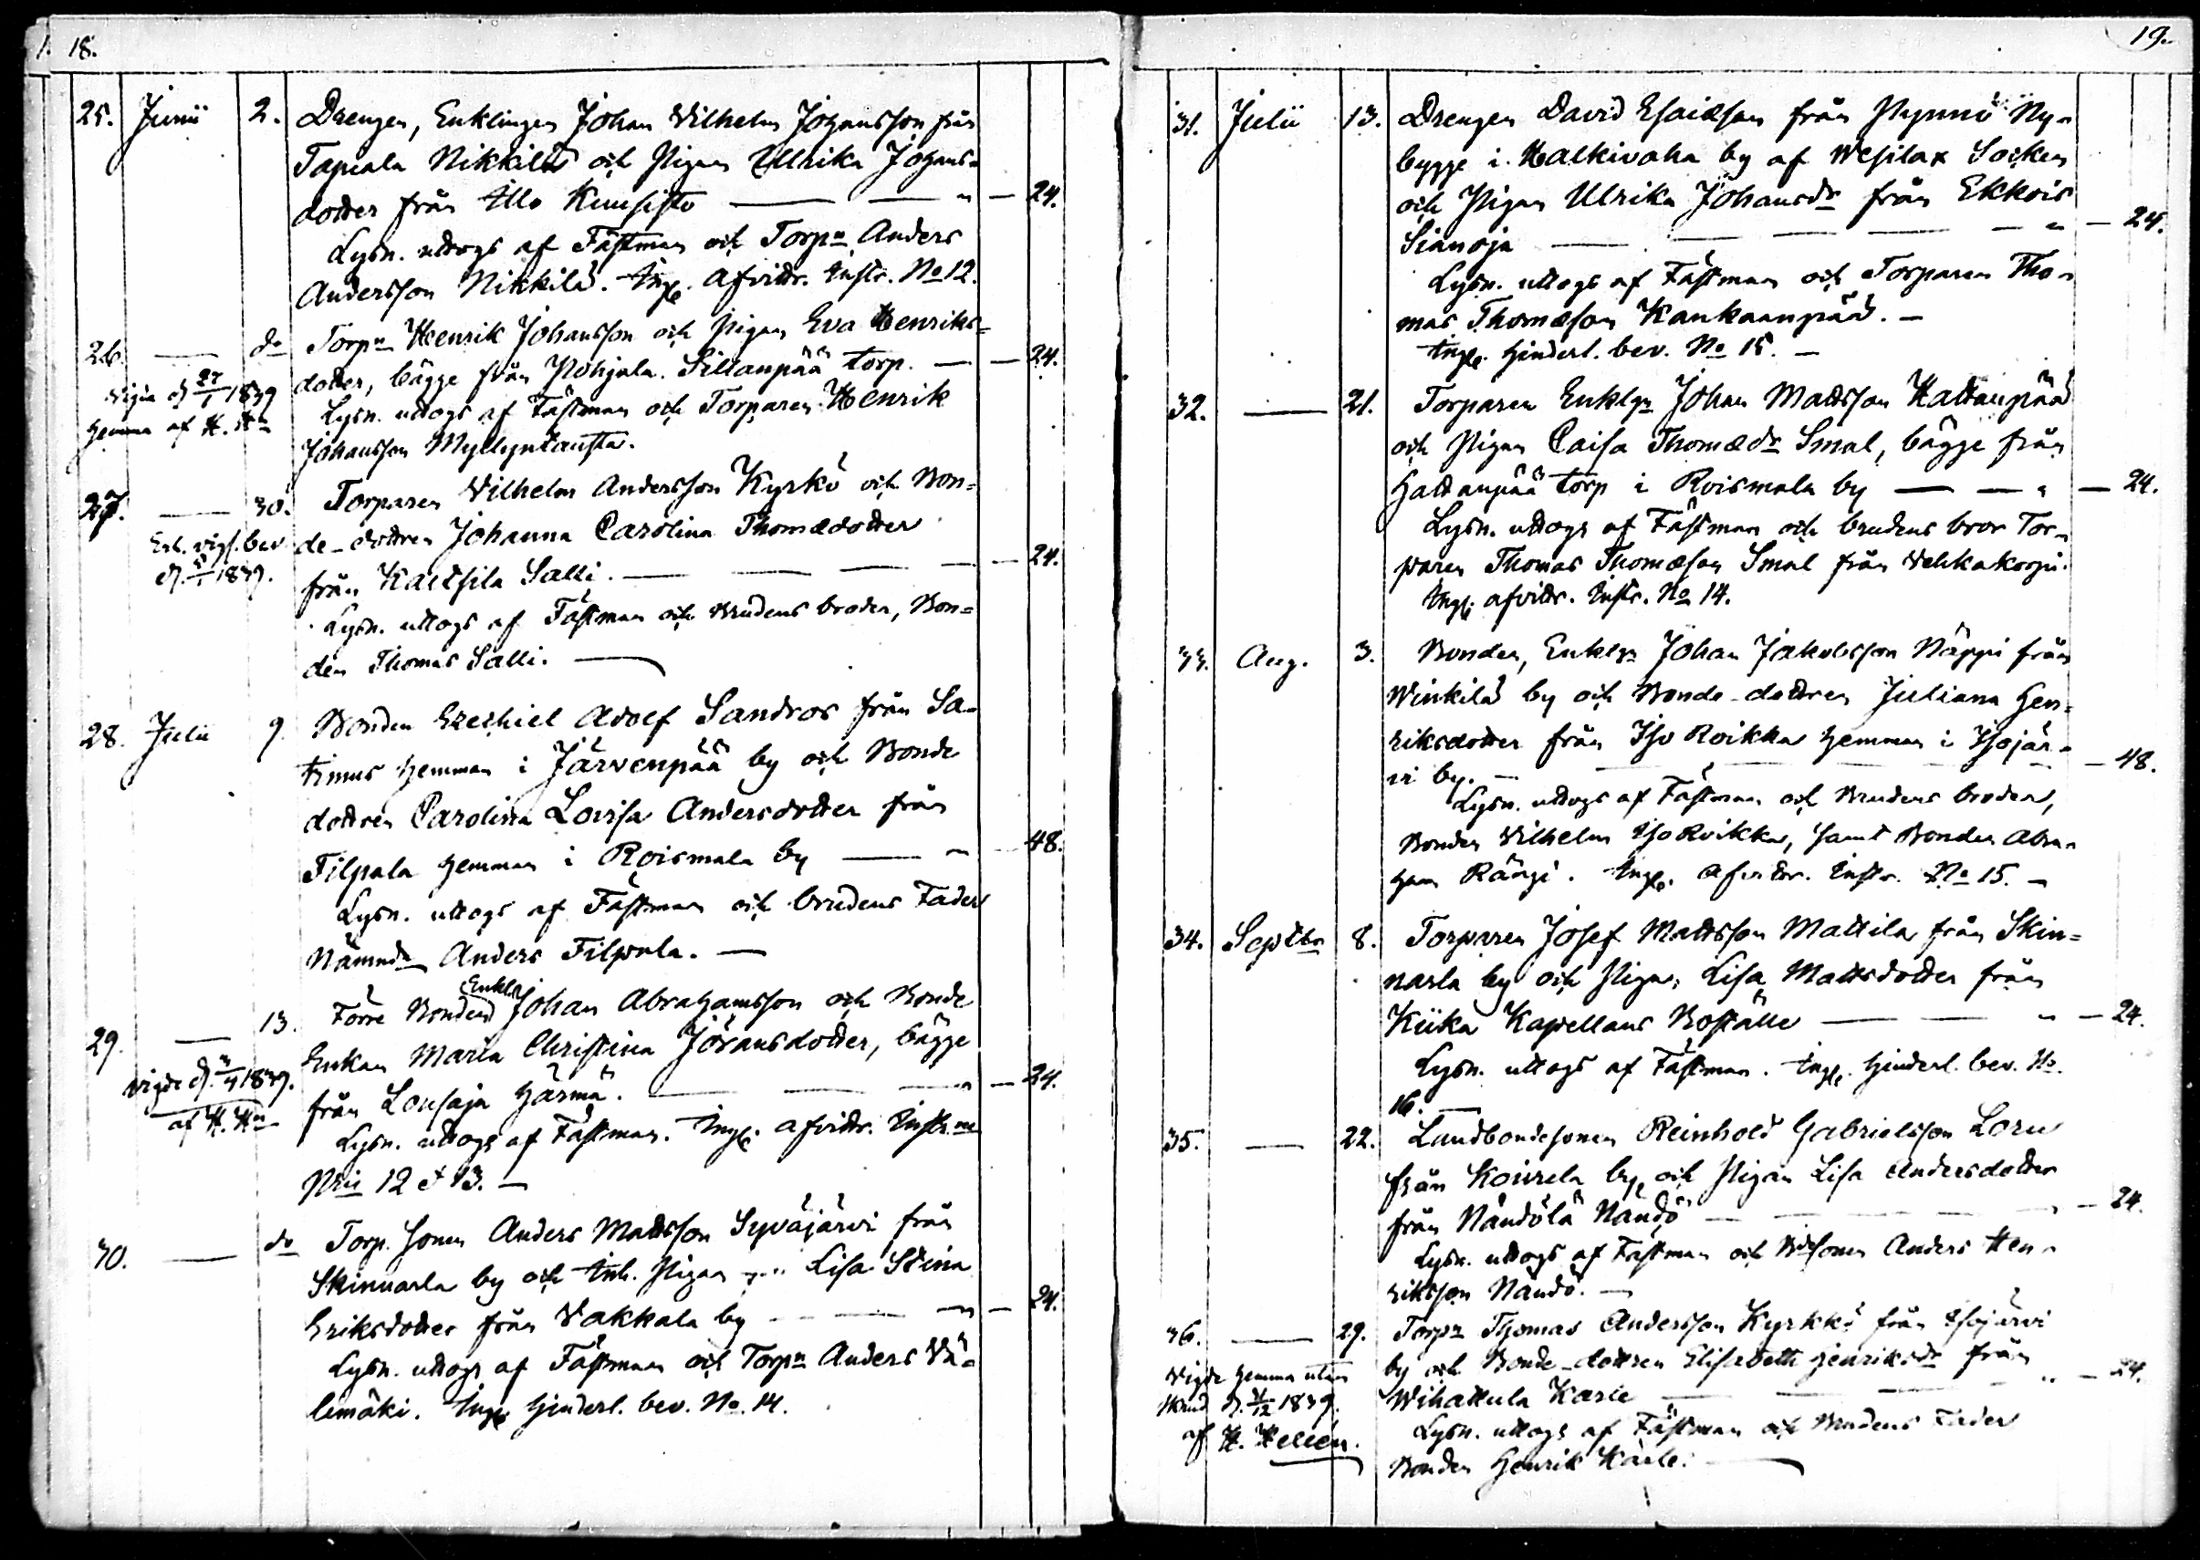 18.
25. Junii 2. Drengen, Enklingen Johan Vilhelm Johansson från
Tapiala Nikkilä och Pigan Ullrika Johans-
dotter från Illo Kuusisto — — " — 24.
Lysn. uttogs af Fästman och Torpn Anders
Andersson Nikkilä. Ingl. afvittr. Instr. No 12.
26. — do Torpn Henrik Johansson och Pigan Eva Henriks-
dotter, bägge från Pohjala Sillanpää torp. — — 24.
Vigde d. 27/1 1839
hemma af H. Hn
Lysn. uttogs af Fästman och Torparen Henrik
Johansson Myllyntausta.
27. — 30. Torparen Vilhelm Andersson Kyrkö och Bon-
de-dottren Johanna Carolina Thomædotter
Erh. vigs. bev.
från Kaltsila Salli. — — — — 24.
Lysn. uttogs af Fästman och Brudens broder, Bon-
den Thomas Salli. —
28. Julii 9 Bonden Ezechiel Adolf Sandroos från Sa-
hemman i Järvenpää by och Bonde
dottren Carolina Lovisa Andersdotter från
Filpala hemman i Roismala by — " — 48.
Lysn. uttogs af Fästman och brudens Fader
Nämndn Anders Filpula. —
29. — 13. Förre Bonden Enkl. Johan Abrahamsson och Bonde
Enkan Maria Christina Johansdotter, bägge
vigde d. 1839.
af H. Hn
från Lousaja Härmä. — — " — 24.
Lysn. uttogs af Fästman. Ingl. afvittr. Instr.
Nris 12 et 13. —
30. — do Torp. sonen Anders Mattsson Syväjärvi från
Skinnarla by och Inh. Pigan Lisa Stina
Eriksdotter från Vakkala by — — " — 24.
Lysn. uttogs af Fästman och Torpn Anders Vä-
limäki. Ingl. hinderl. bev. No. 14.
19.
31. Julii 13. Drengen David Esaiæson från Ny-
bygge i Halkivaha by af Wesilax Socken
och Pigan Ulrika Johansdr från Ekkois
Sianoja — — — — " — 24.
Lysn. uttogs af Fästman och Torparen Tho-
mas Thomæson Kankaanpää. —
Ingl. hinderl. bev. No 15. —
32. — 21. Torparen Enklgn Johan Mattsson Hattanpää
och Pigan Caisa Thomædr Smal, bägge från
Hattanpää torp i Roismala by — — " — 24.
Lysn. uttogs af Fästman och brudens bror Tor-
paren Thomas Thomæson Smal från Vehkakorpi.
Ingl. afvittr. Instr. No 14.
33. Aug. 3. Bonden, Enklgn Johan Jakobsson Näppi från
Winkilä by och Bonde-dottren Juliana Hen-
riksdotter från Iso Roikka hemman i Isojär-
vi by. — — — — 48.
Lysn. uttogs af Fästman och Brudens broder,
Bonden Vilhelm Iso Roikka, samt Bonden Abra-
ham Rängi. Ingl. afvittr. Instr. No 15. —
34. Septbr 8. Torparen Josef Mattsson Mattila från Skin-
narla by och Pigan Lisa Mattsdotter från
Kiika Kapellans Boställe — — " — 24.
Lysn. uttogs af Fästman. Ingl. hinderl. bev. No.
16. —
35. — 22. Landbondesonen Reinhold Gabrielsson Loru
från Kouvola by och Pigan Lisa Andersdotter
från Nändölä Nändö — — — " — 24.
Lysn. uttogs af Fästman och Bdesonen Anders Hen-
riksson Nändö. —
36. — 29. Torpn Thomas Andersson Kyrkkö från Isojärvi
by och Bonde-dottren Elisabeth Henriksdr från
Vigde hemma utan
Wihattula Karle — — — " — 24.
d. /12 1839.
Lysn. uttogs af Fästman och Brudens Fader
af H. Helién.
Bonden Henrik Karle. —